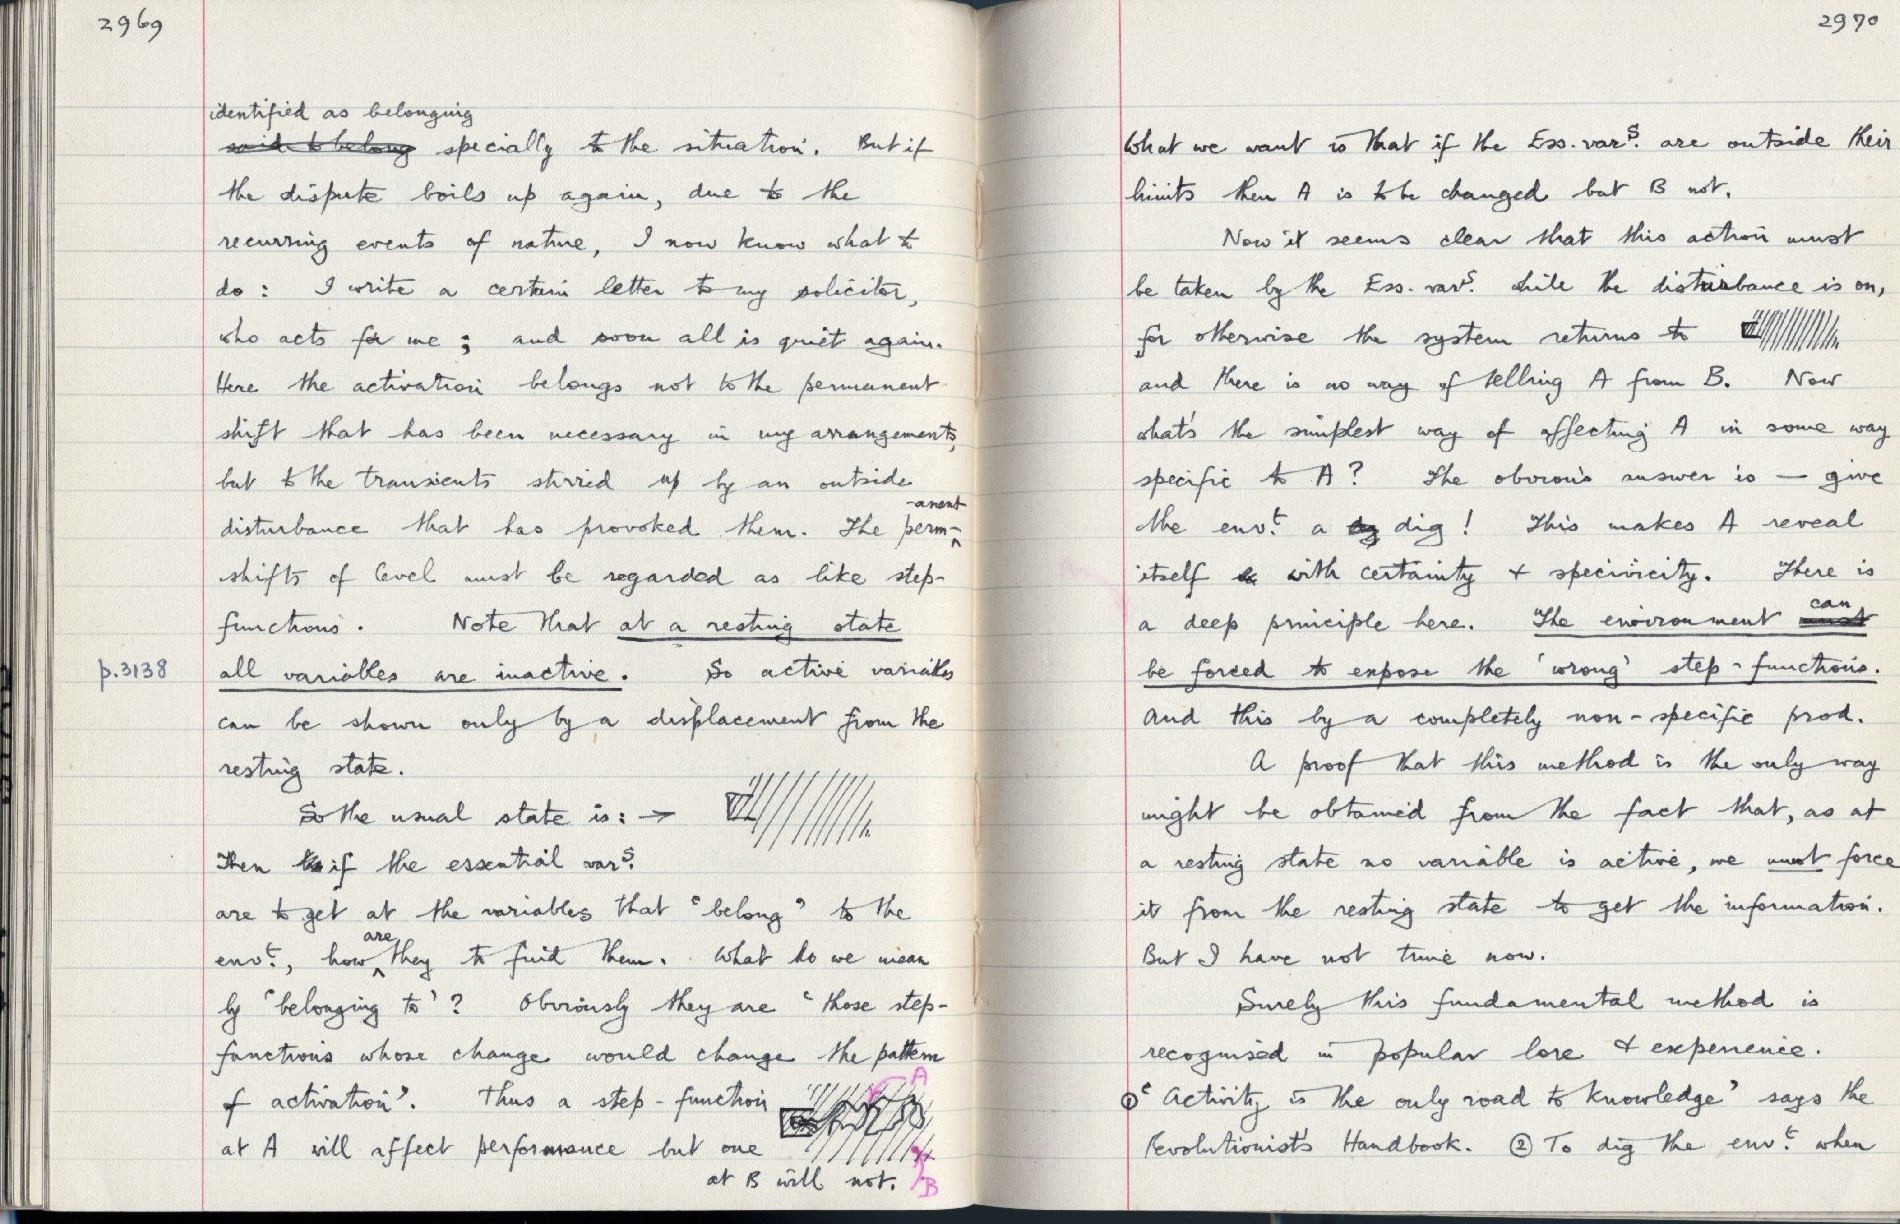 2969
identified as belonging
said to belong specially to the situation. But if
the dispute boils up again, due to the
recurring events of nature, I now know what to
do: I write a certain letter to my solicitor,
who acts for me; and soon all is quiet again.
Here the activation belongs not to the permanent
shift that has been necessary in my arrangements,
but to the transients stirred up by an outside
-anent
disturbance that has provoked them. The perm-
shifts of level must be regarded as like step-
functions. Note that at a resting state
p.3138
all variables are inactive. So active variables
can be shown only by a displacement from the
resting state.
So the usual state is: →
Then if the essential varS.
are to get at the variables that "belong" to the
are
envt., how they to find them. What do we mean
by 'belonging to'? Obviously they are "those step-
functions whose change would change the pattern
of activation". Thus a step-function
A
at A will affect performance but one
at B will not.
B
2970
What we want is that if the Ess. varS. are outside their
limits then A is to be changed but B not.
Now it seems clear that this action must
be taken by the Ess. varS. while the disturbance is on,
for otherwise the system returns to
and there is no way of telling A from B. Now
what's the simplest way of affecting A in some way
specific to A? The obvious answer is — give
the envt. a dig! This makes A reveal
itself with certainty + specivicity. There is
can
a deep principle here. The environment must
be forced to expose the 'wrong' step-functions.
And this by a completely non-specific prod.
A proof that this method is the only way
might be obtained from the fact that, as at
a resting state no variable is active, we must force
it from the resting state to get the information.
But I have not time now.
Surely this fundamental method is
recognised in popular lore + experience.
① "Activity is the only road to knowledge" says the
Revolutionist's Handbook. ② To dig the envt. when